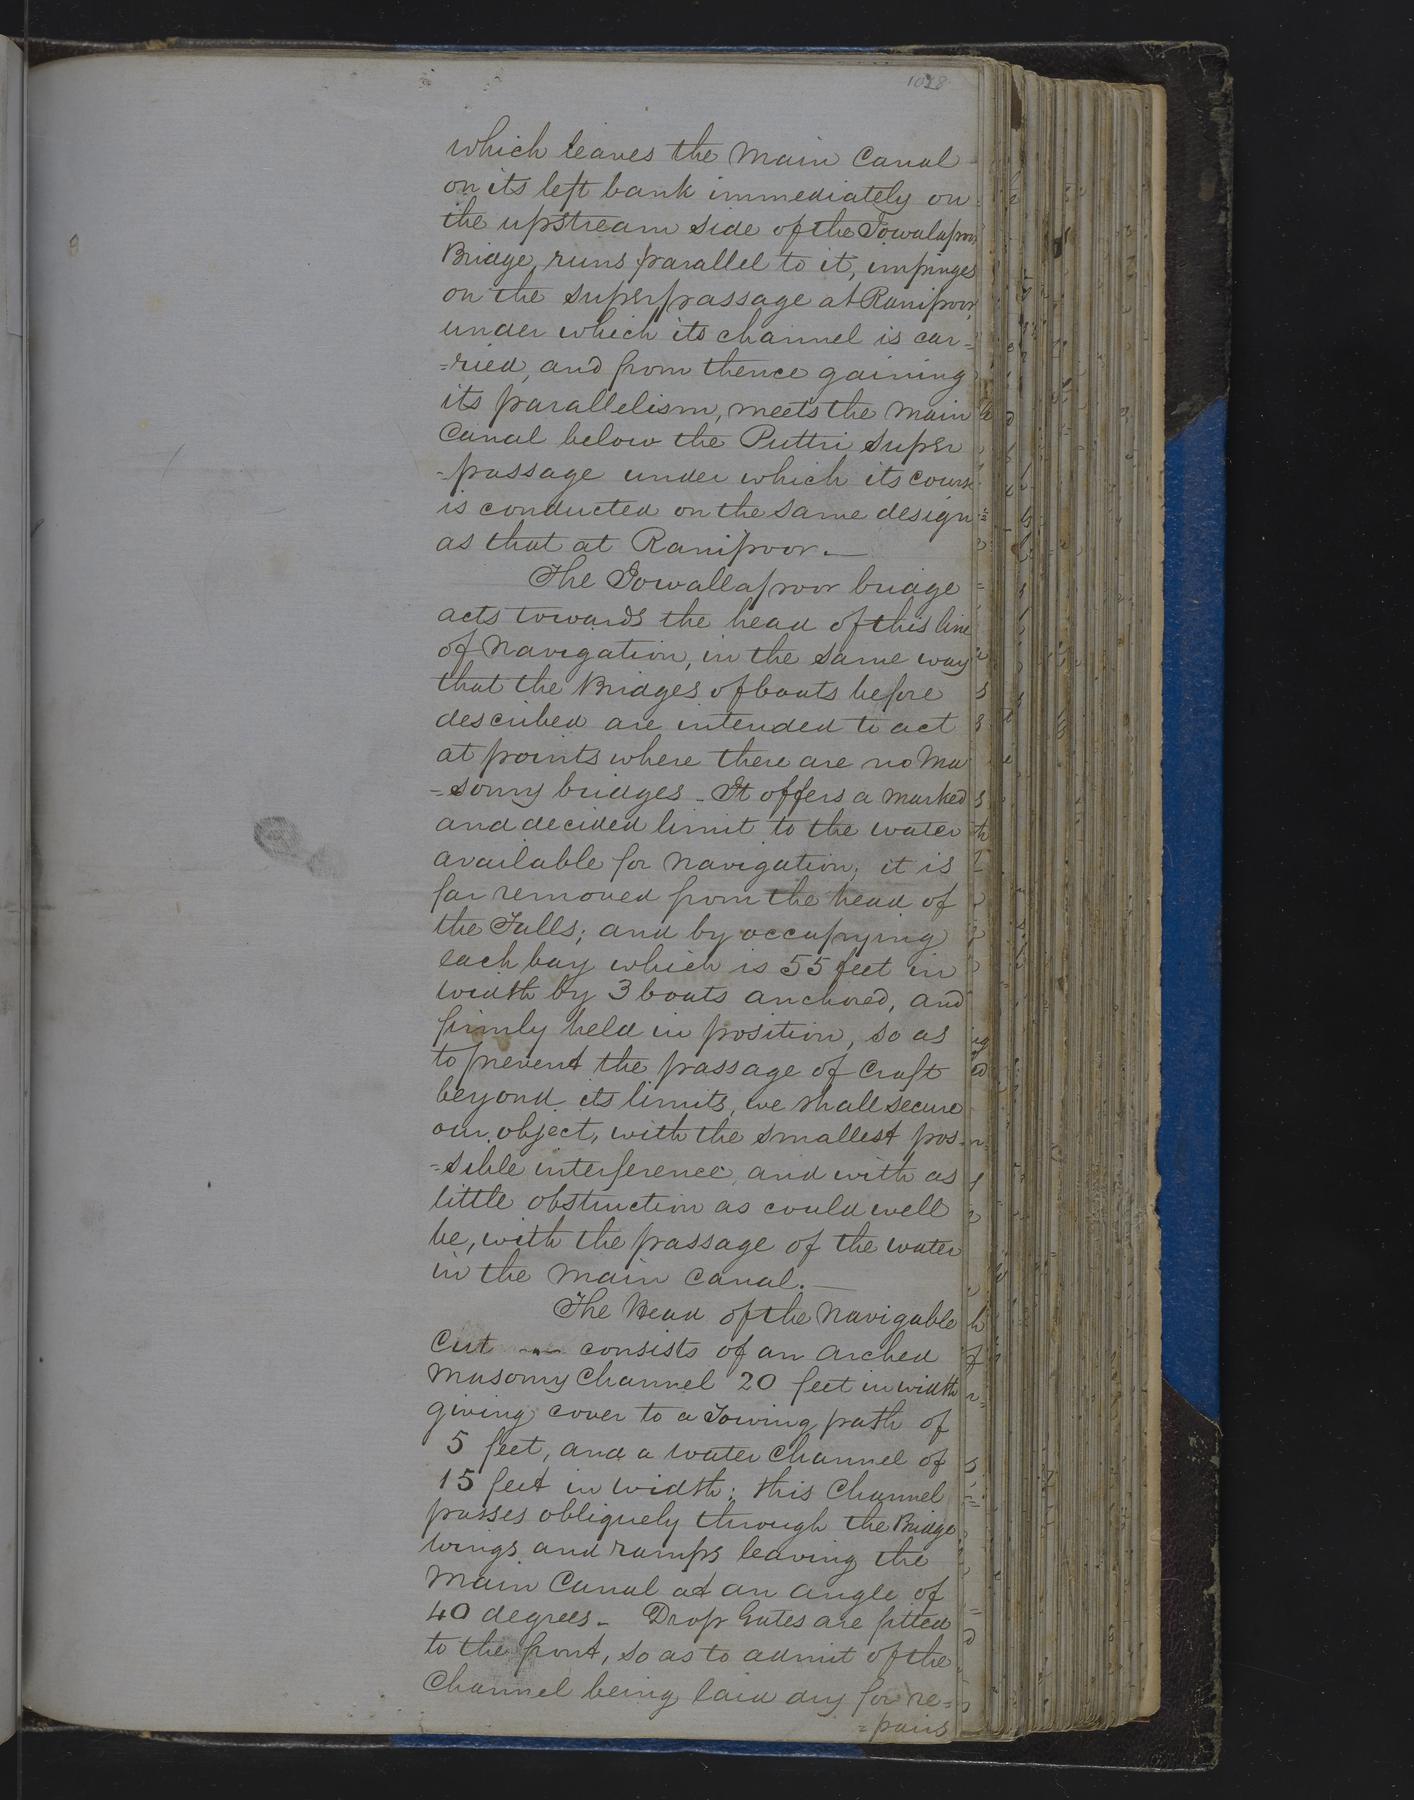 1028
which leaves the Main Canal
on its left bank immediately on
the upstream side of the Jowalapoor
Bridge, runs parallel to it, impinges
on the superpassage at Ranipoor,
under which its channel is car=
=ried, and from thence gaining
its parallelism, meets the Main
Canal below the Puttri super
-passage under which its course
is conducted on the same design
as that at Ranipoor.—
The Jowallapoor bridge
acts towards the head of this line
of Navigation, in the same way
that the Bridges of boats before
described are intended to act
at points where there are no Ma
=sonry bridges - It offers a marked
and decided limit to the water
available for navigation; it is
far removed from the head of
the Falls; and by occupying
each bay which is 55 feet in
width by 3 boats anchored, and
firmly held in position, so as
to prevent the passage of Craft
beyond its limits, we shall secure
our object, with the smallest pos-
=sible interference, and with as
little obstruction as could well
be, with the passage of the water
in the Main Canal.—
The Head of the Navigable
Cut consists of an arched
Masonry Channel 20 feet in width
giving cover to a Towing path of
5 feet, and a water Channel of
15 feet in width; this Channel
passes obliquely through the Bridge
wings and ramps leaving the
Main Canal at an angle of
40 degrees - Drop Gates are fitted
to the front, so as to admit of the
Channel being laid dry for re=
=pairs